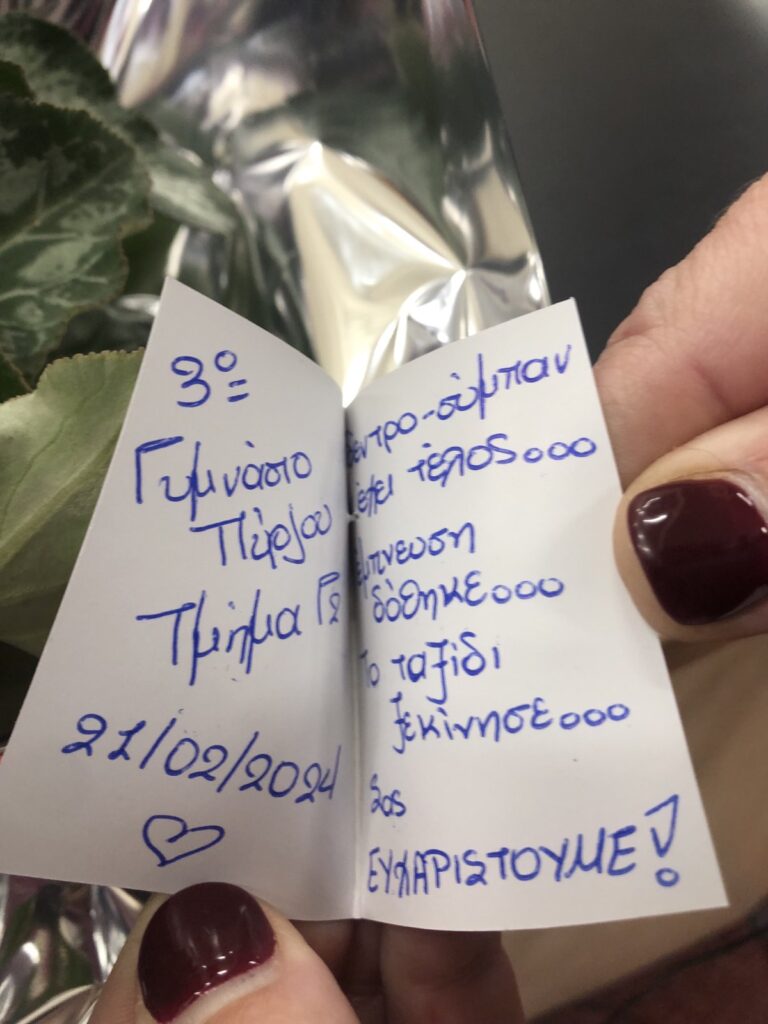 3ο
Γυμνάσιο
Πύργου
Τμήμα Γ2
21/02/2024
δεντρο-σύμπαν
έχει τέλος...
έμπνευση
δόθηκε...
Το ταξίδι
ξεκίνησε...
Σας
ΕΥΧΑΡΙΣΤΟΥΜΕ!